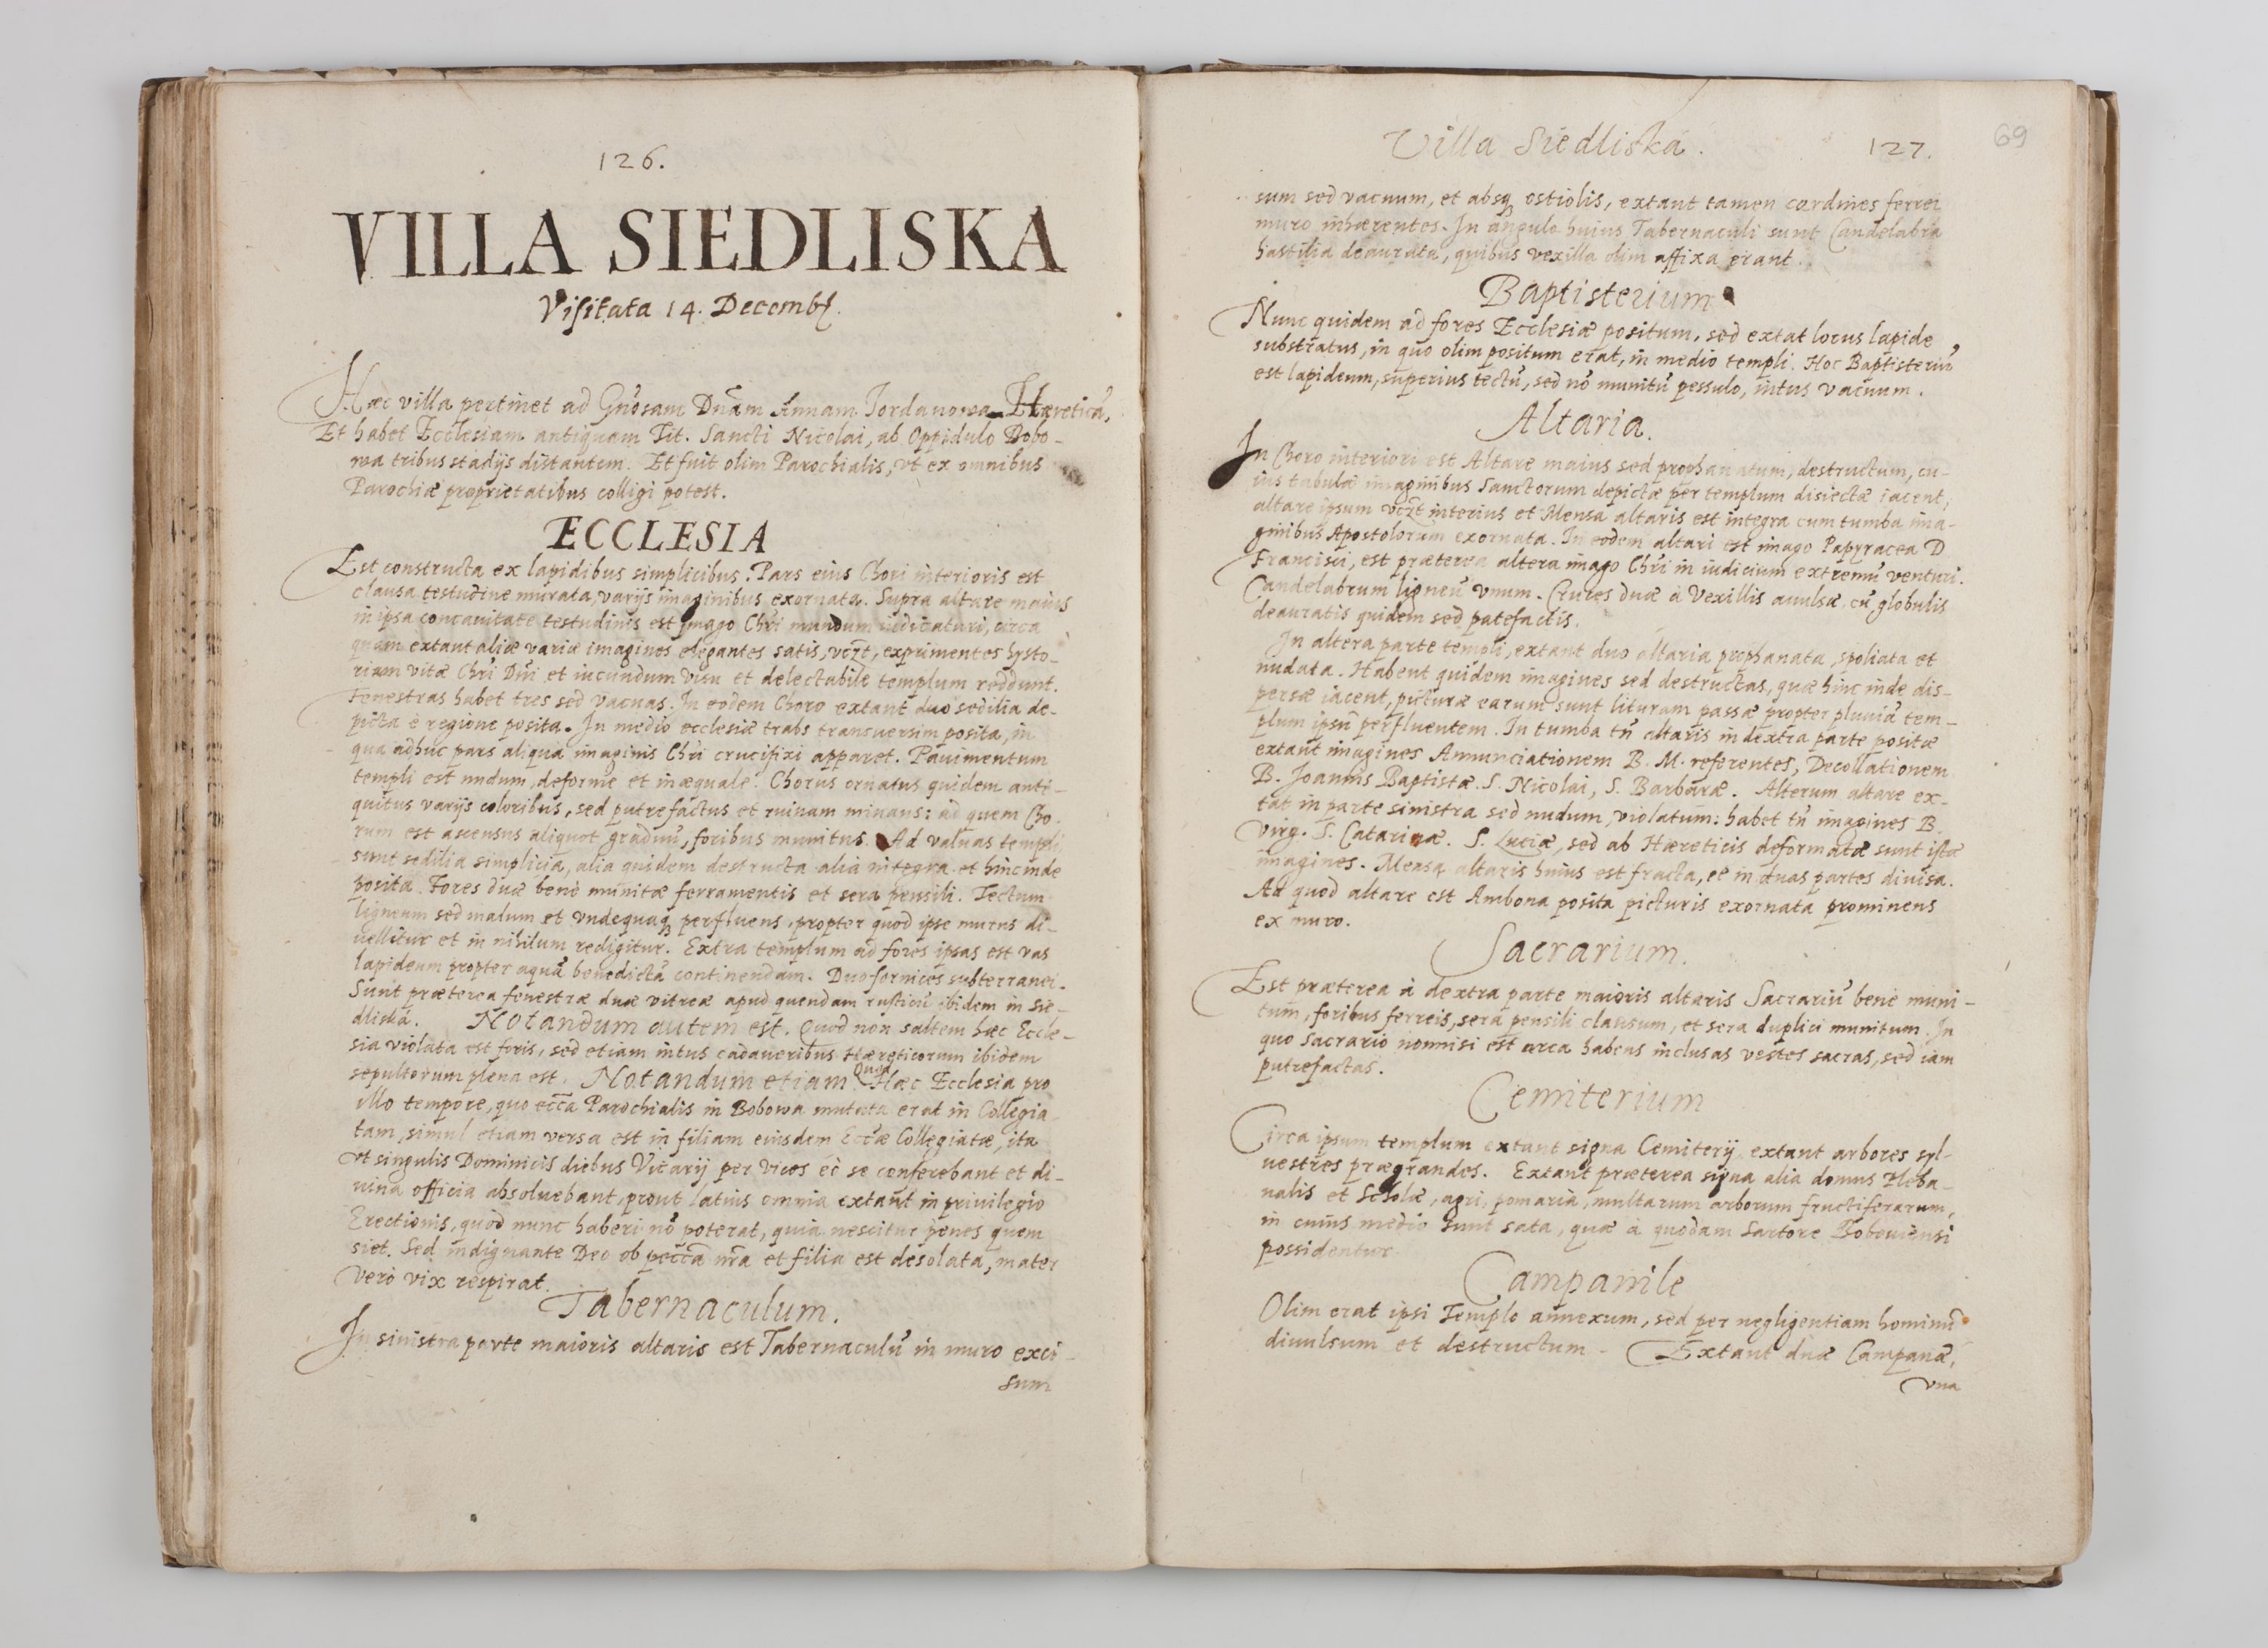 126.
VILLA SIEDLISKA
Visitata 14. Decemb.
Hæc villa pertinet ad Gnosam Dnam Annam Iordanowa Hæreticā,
Et habet Ecclesiam antiquam Tit. Sancti Nicolai, ab Oppidulo Bobo-
wa tribus stadijs distantem. Et fuit olim Parochialis, vt ex omnibus
Parochiæ proprietatibus colligi potest.
ECCLESIA
Est constructa ex lapidibus simplicibus. Pars eius Chori interioris est
clausa testudine murata, varijs imaginibus exornata. Supra altare maius
in ipsa concauitate testudinis est imago Chri mundum iudicaturi, circa
quam extant aliæ variæ imagines elegantes satis, exprimentes hysto-
riam vitæ Chri Dni et iucundum visu et delectabile templum reddunt.
Fenestras habet tres sed vacuas. In eodem Choro extant duo sedilia de-
picta è regione posita. In medio ecclesiæ trabs transuersim posita, in
qua adhuc pars aliqua imaginis Chri crucifixi apparet. Pauimentum
templi est nudum, deforme et inæquale. Chorus ornatus quidem anti-
quitus varijs coloribus, sed putrefactus et ruinam minans: ad quem Cho-
rum est ascensus aliquot graduū, foribus munitus. Ad valuas templi
sunt sedilia simplicia, alia quidem destructa alia integra et hinc inde
posita. Fores duæ benè munitæ ferramentis et sera pensili. Tectum
ligneum sed malum et vndequaq; perfluens, propter quod ipse murus di-
uellitur et in nihilum redigitur. Extra templum ad fores ipsas est vas
lapideum propter aquā benedictā continendam. Duo fornices subterranei.
Sunt præterea fenestræ duæ vitreæ apud quendam rusticū ibidem in Sie-
dliská. Notandum autem est. Quod non saltem hæc Eccle-
sia violata est foris, sed etiam intus cadaueribus Hæreticorum ibidem
sepultorum plena est. Notandum etiam Quod Hæc Ecclesia pro
illo tempore, quo ecca Parochialis in Bobowa mutata erat in Collegia-
tam, simul etiam versa est in filiam eiusdem Eccæ Collegiatæ, ita
vt singulis Dominicis diebus Vicarij per vices eò se conferebant et di-
uina officia absoluebant, prout latius omnia extant in priuilegio
Erectionis, quod nunc haberi nō poterat, quia nescitur penes quem
siet. Sed indignante Deo ob pecca nra et filia est desolata, mater
verò vix respirat.
Tabernaculum.
In sinistra parte maioris altaris est Tabernaculū in muro exci-
sum
Villa Siedliská.
127.
69
sum sed vacuum, et absq; ostiolis, extant tamen cardines ferrei
muro inhærentes. In angulo huius Tabernaculi sunt Candelabra
hastilia deaurata, quibus vexilla olim affixa erant.
Baptisterium
Nunc quidem ad fores Ecclesiæ positum, sed extat locus lapide
substratus, in quo olim positum erat, in medio templi. Hoc Baptisteriū
est lapideum, superius tectū, sed nō munitū pessulo, intus vacuum.
Altaria.
In Choro interiori est Altare maius sed prophanatum, destructum, cu-
ius tabulæ imaginibus Sanctorum depictæ per templum disiectæ iacent,
altare ipsum interius et Mensa altaris est integra cum tumba ima-
ginibus Apostolorum exornata. In eodem altari est imago Papyracea D
Francisci, est præterea altera imago Chri in iudicium extremū venturi.
Candelabrum ligneū vnum. Cruces duæ à Vexillis auulsæ, cū globulis
deauratis quidem sed patefactis.
In altera parte templi, extant duo altaria prophanata, spoliata et
nudata. Habent quidem imagines sed destructas, quæ hinc inde dis-
persæ iacent, picturæ earum sunt lituram passæ propter pluuiā tem-
plum ipsū perfluentem. In tumba tn altaris in dextra parte positæ
extant imagines Annunciationem B. M. referentes, Decollationem
B. Joannis Baptistæ. S. Nicolai, S. Barbaræ. Alterum altare ex-
tat in parte sinistra sed nudum, violatum: habet tn imagines B.
Virg. S. Catarinæ. S. Luciæ, sed ab Hæreticis deformatæ sunt istæ
imagines. Mensa altaris huius est fracta, et in duas partes diuisa.
Ad quod altare est Ambona posita picturis exornata prominens
ex muro.
Sacrarium.
Est præterea à dextra parte maioris altaris Sacrariū benè muni-
tum, foribus ferreis, sera pensili clausum, et sera duplici munitum. In
quo Sacrario nonnisi est arca habens inclusas vestes sacras, sed iam
putrefactas.
Cemiterium
Circa ipsum templum extant signa Cemiterij extant arbores syl-
uestres prægrandes. Extant præterea signa alia domus Pleba-
nalis et Scholæ, agri, pomaria, multarum arborum fructiferarum,
in cuius medio sunt sata, quæ à quodam Sartore Boboviensi
possidentur.
Campanile
Olim erat ipsi Templo annexum, sed per negligentiam hominū
diuulsum et destructum. Extant duæ Campanæ,
vna